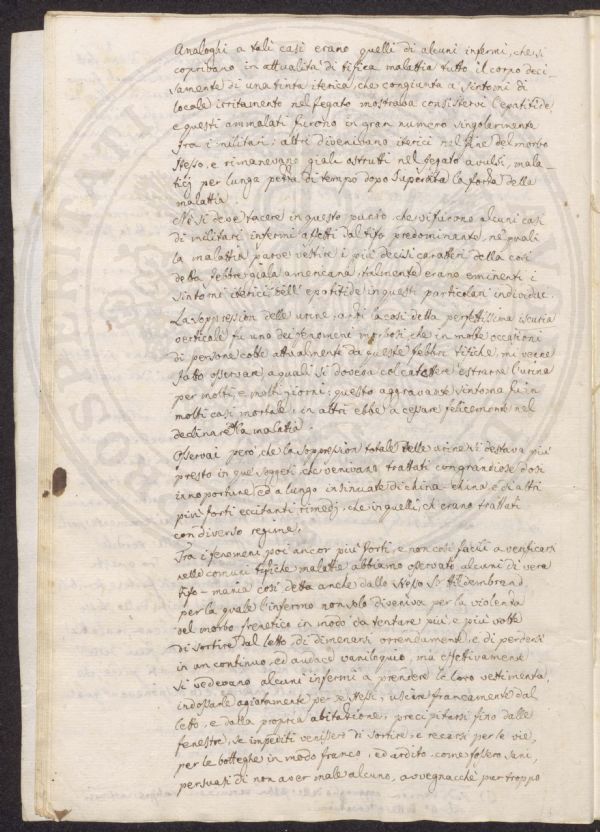 Analoghi a tali casi erano quelli di alcuni infermi, che si
coprivano in attualità di tifica malattia tutto il corpo deci-
samente di una tinta iterica, che congiunta a sintomi di
locale irritamento nel fegato mostrava consistervi l'epatitide,
e questi ammalati furono in gran numero singolarmente
fra i militari: altri divenivano iterici nel fine del morbo
stesso, e rimanevano gialli ostrutti nel fegato, mala-
ticj per lunga pezza di tempo dopo superata la forza della
malattia.
Nè si deve tacere in questo punto, che vi furono alcuni casi
di militari infermi affetti dal tifo predominante, ne' quali
la malattia parve vestire i più decisi caratteri della così
detta febbre gialla americana, talmente erano eminenti i
sintomi iterici, dell'epatitide in questi particolari individui.
La soppressione delle urine, anzi la così detta perfettissima iscuria
verticale fu uno dei fenomeni morbosi, che in molte occasioni
di persone colte attualmente da queste febbri tifiche, mi venne
fatto osservare, a quali si doveva col catettere estrarne l'urina
per molti, e molti giorni: questo aggravante sintoma fu in
molti casi mortale, in altri ebbe a cessare felicemente nel
declinare la malattia.
Osservai però che la soppressione totale delle urine si destava più
presto in que' soggetti, che venivano trattati con grandiose dosi
inopportune ed a lungo insinuate di china-china e di altri
più forti eccitanti rimedj, che in quelli, ch'erano trattati
con diverso regime.
Tra i fenomeni poi ancor più forti, e non così facili a verificarsi
nelle comuni tifiche malattie abbiamo osservato alcuni di vera
tifo-mania così detta anche dallo stesso Sr Hildembrand,
per la quale l'infermo non solo diveniva per la violenza
del morbo frenetico in modo da tentare più, e più volte
di sortire dal letto, di dimenarsi orrendamente, e di perdersi
in un continuo, ed audace vaniloquio, ma effettivamente
si vedevano alcuni infermi a prendere le loro vestimenta,
indossarle agiatamente per se stessi, uscire francamente dal
letto, e dalla propria abitazione, precipitarsi fino dalle
fenestre, se impediti venissero di sortire, e recarsi per le vie,
per le botteghe in modo franco, ed ardito, come fossero sani,
persuasi di non aver male alcuno, avvegnacchè pur troppo